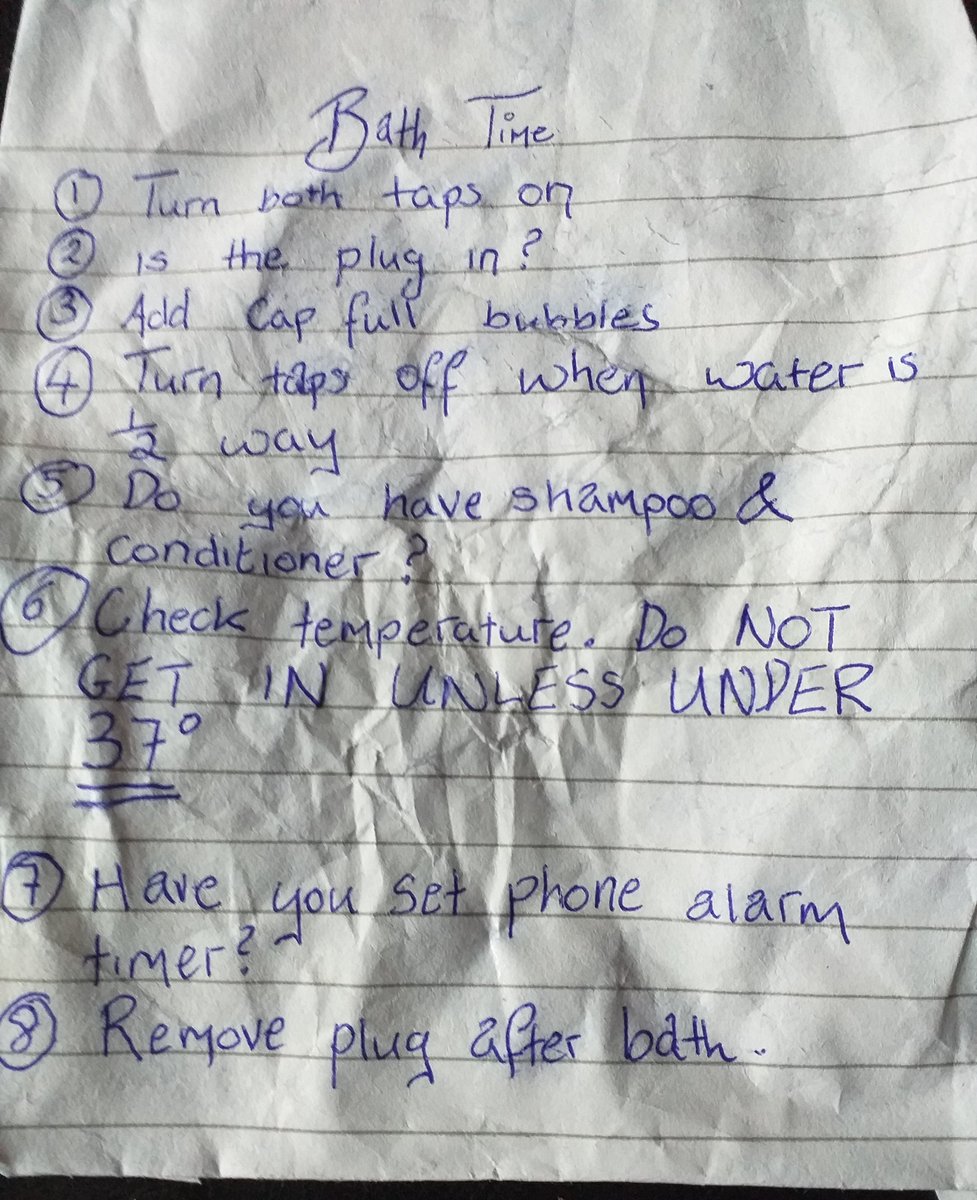 Bath Time
① Turn both taps on
② is the plug in?
③ Add Cap full bubbles
④ Turn taps off when water is
½ way
⑤ Do you have shampoo &
conditioner?
⑥ Check temperature. Do NOT
GET IN UNLESS UNDER
37°
⑦ Have you set phone alarm
timer?
⑧ Remove plug after bath.